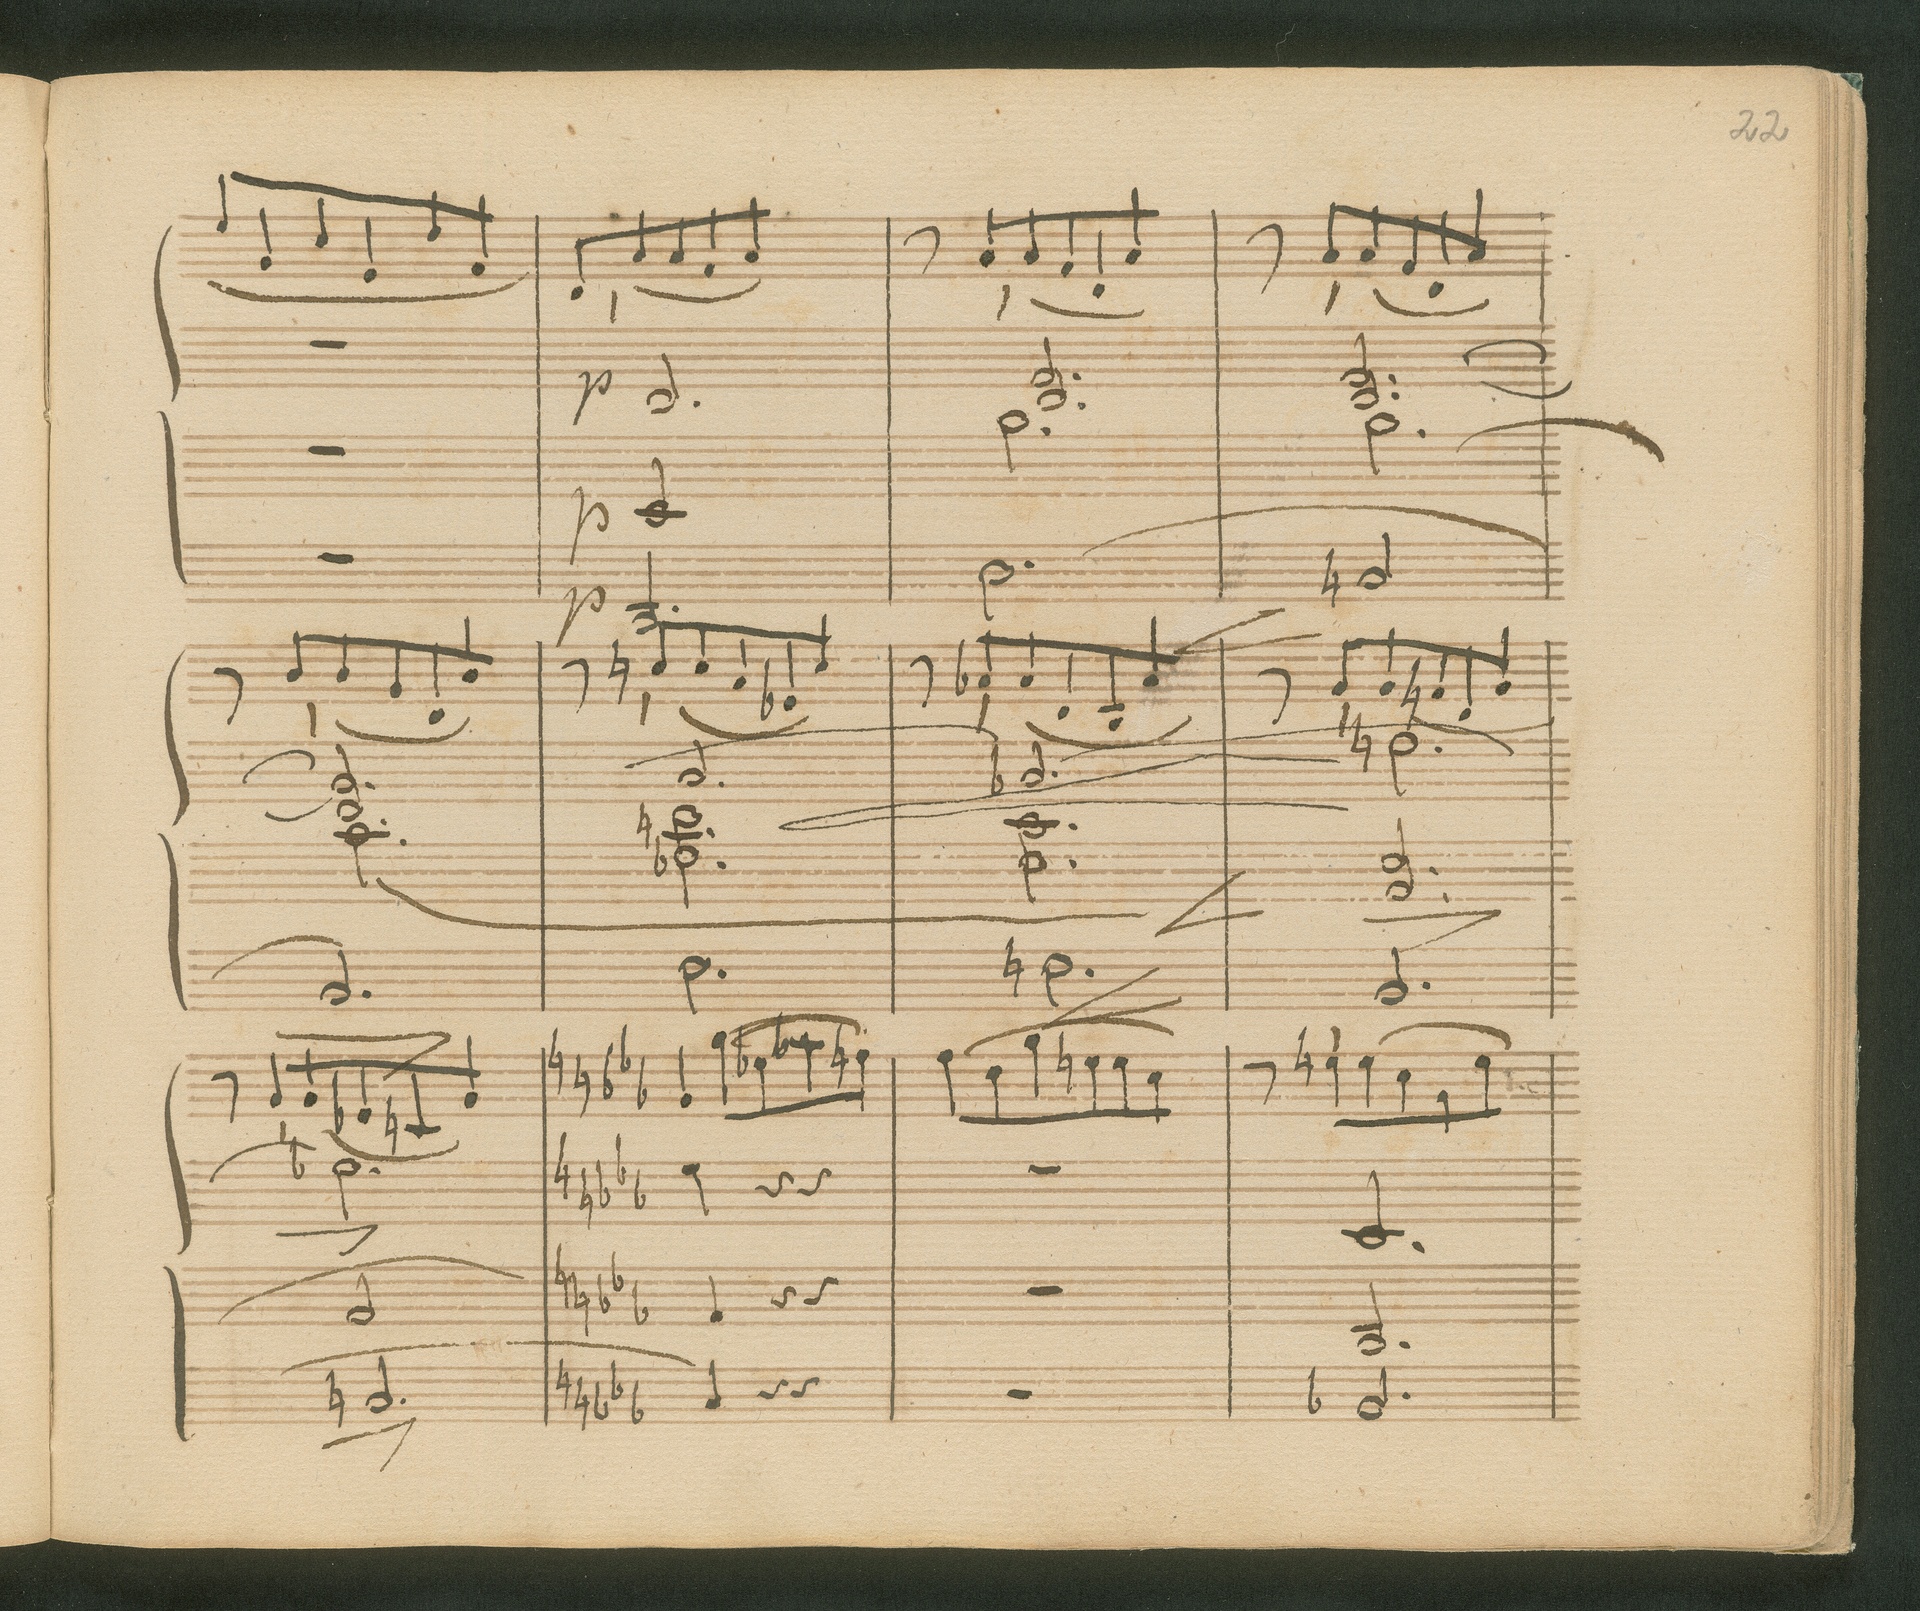 22
p
p
p